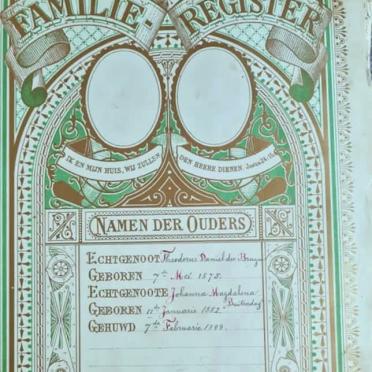 FAMILIE-REGISTER
IK EN MIJN HUIS, WIJ ZULLEN DEN HEERE DIENEN. Josua 24:15
NAMEN DER OUDERS
ECHTGENOOT Theodorus Daniel de Bruyn
GEBOREN 7de Mei 1875.
ECHTGENOOTE Johanna Magdalena
GEBOREN 11de Januarie 1882.
GEHUWD 7de Februarie